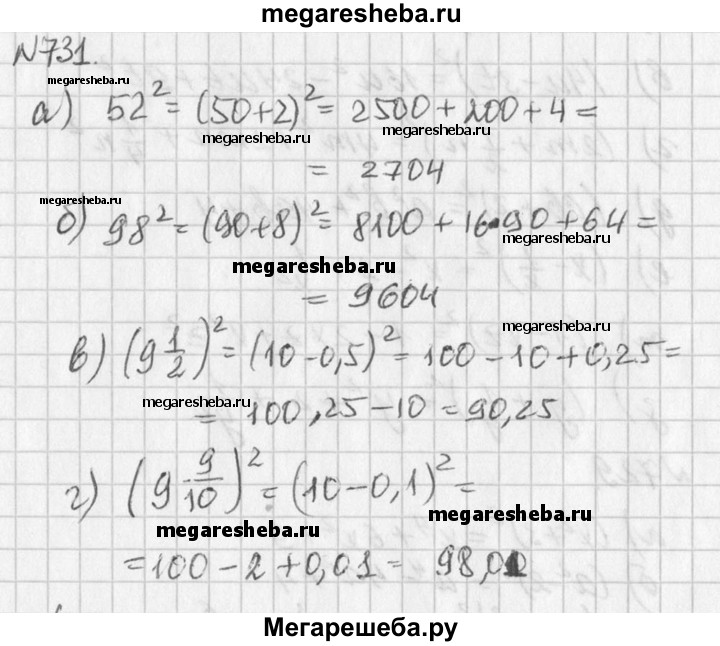 megaresheba.ru
N731.
megaresheba.ru
а) 52² = (50+2)² = 2500+200+4=
megaresheba.ru megaresheba.ru
= 2704
megaresheba.ru
б) 98² = (90+8)² = 8100+16·90+64=
megaresheba.ru
megaresheba.ru
= 9604
megaresheba.ru
в) (9 1/2)² = (10-0,5)² = 100-10+0,25=
megaresheba.ru
= 100,25-10=90,25
г) (9 9/10)² = (10-0,1)² =
megaresheba.ru megaresheba.ru
=100-2+0,01= 98,01
Мегарешеба.ру